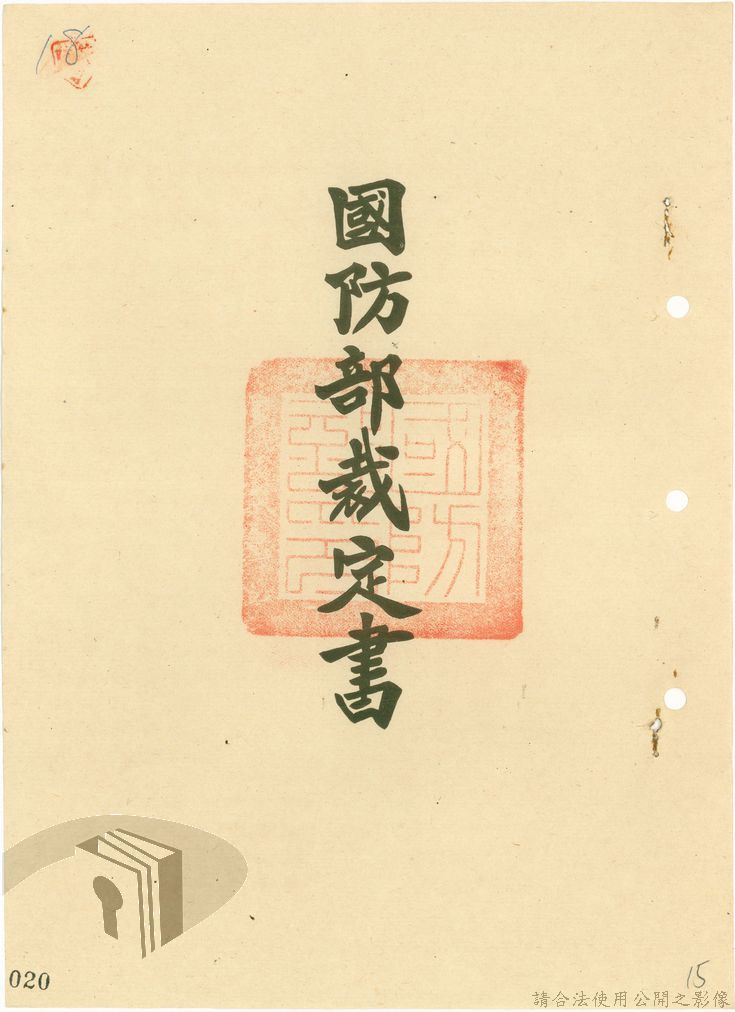 18
國防部裁定書
國防部印
020
15
請合法使用公開之影像